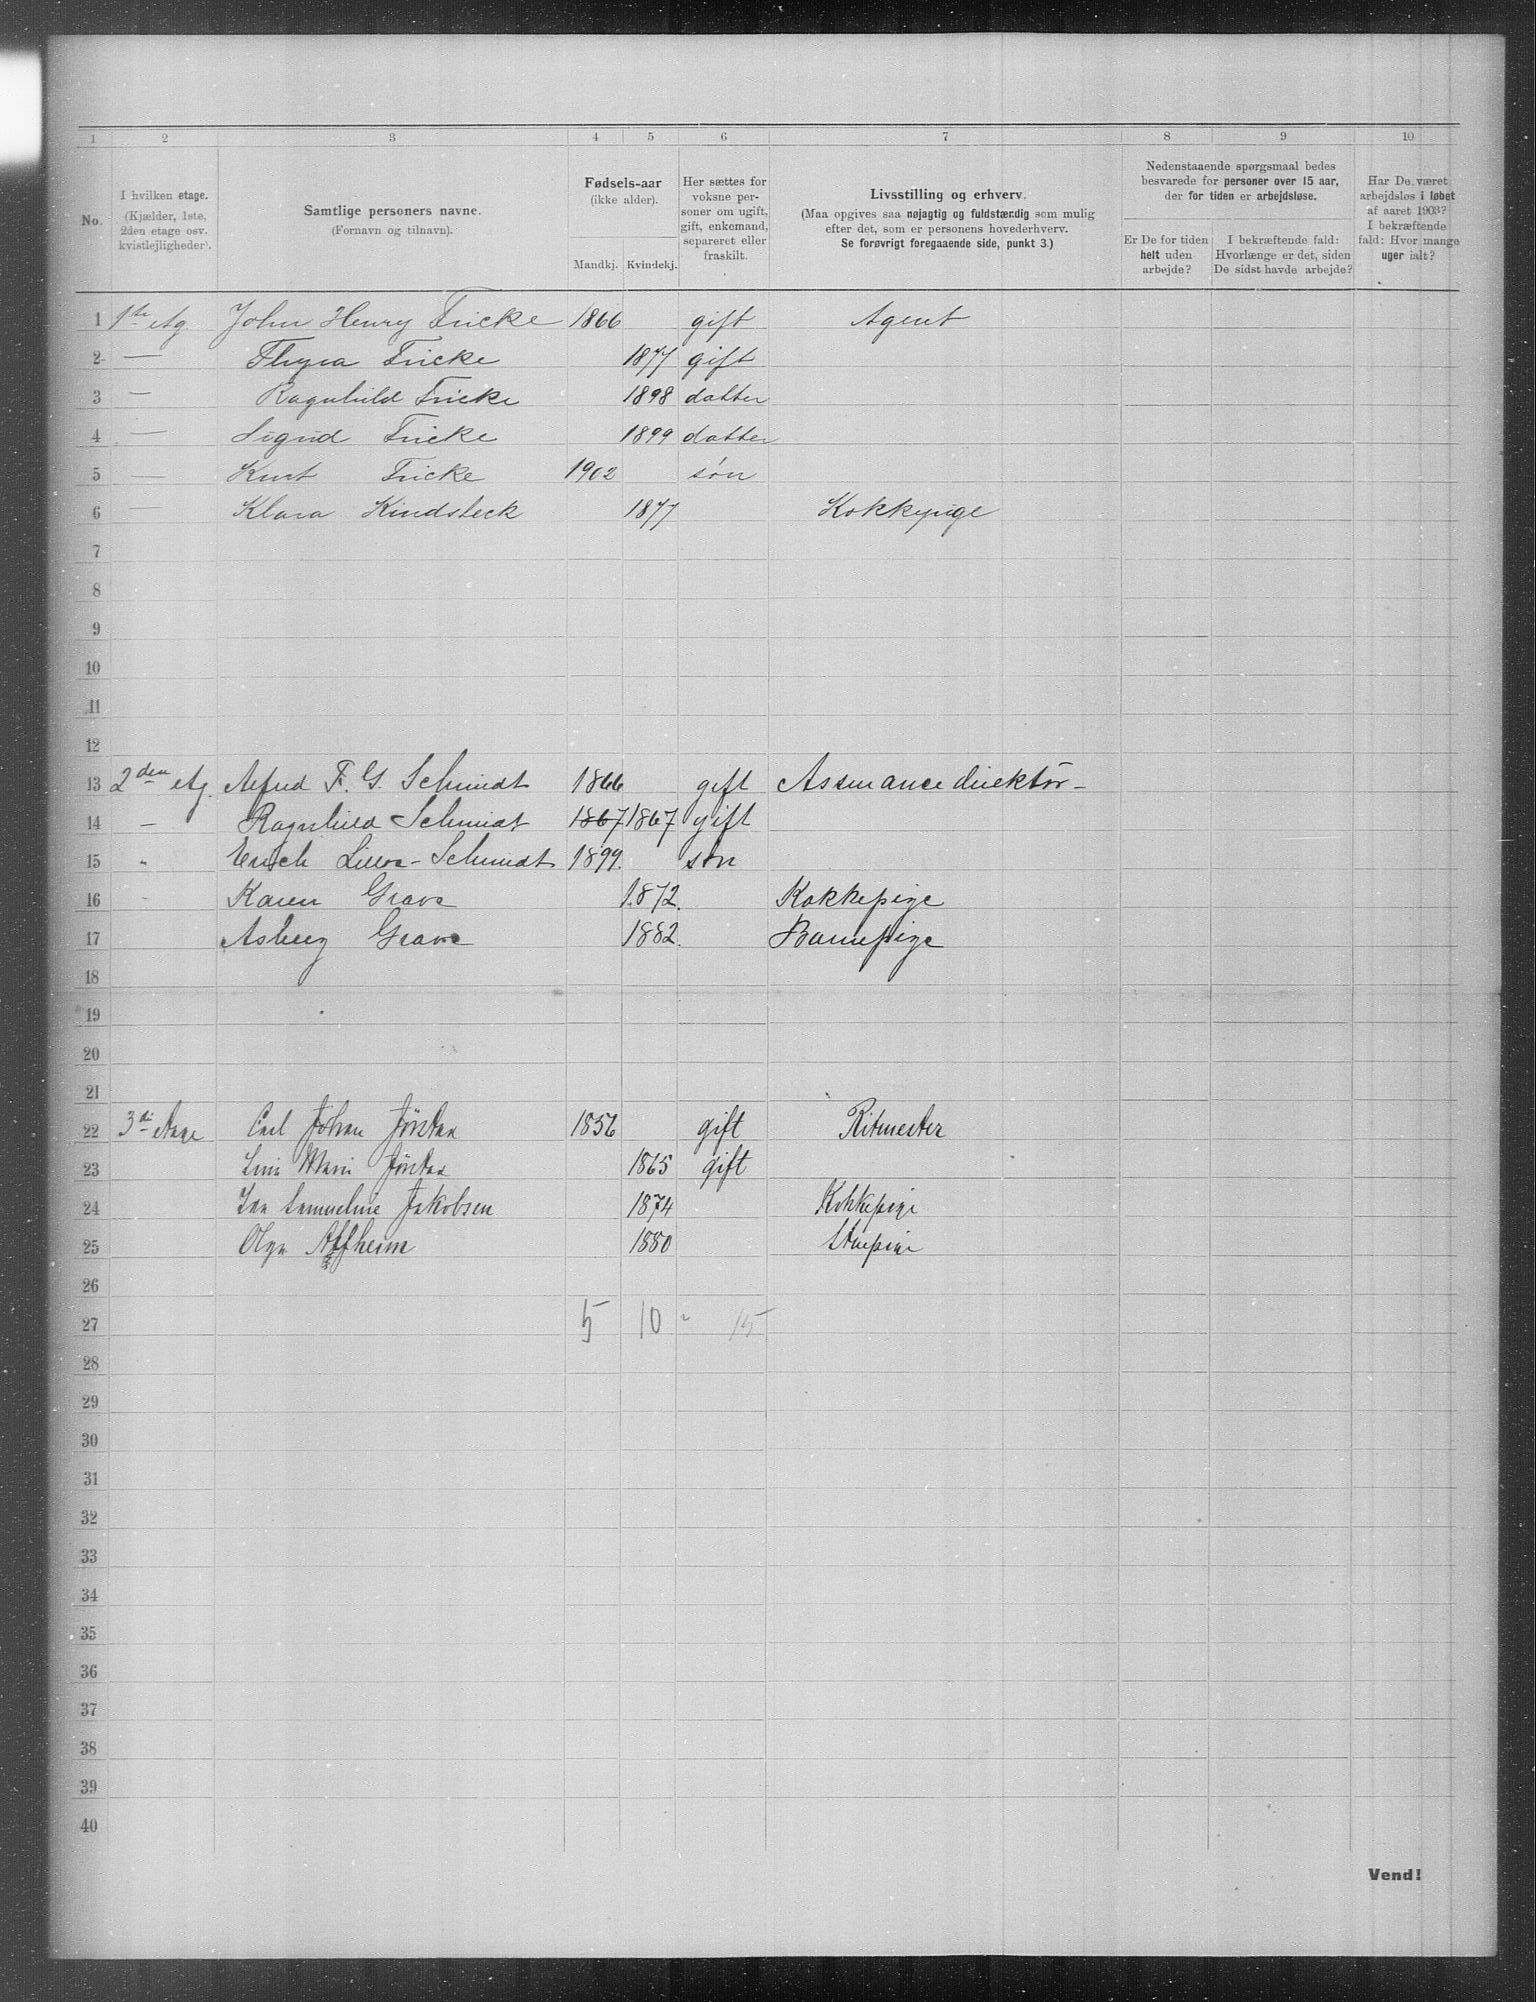 1 2 3 4 5 6 7 8 9 10
No.
I hvilken etage.
(Kjælder, 1ste,
2den etage osv.
kvistlejligheder).
Samtlige personers navne.
(Fornavn og tilnavn).
Fødsels-aar
(ikke alder).
Mandkj. Kvindekj.
Her sættes for
voksne per-
soner om ugift,
gift, enkemand,
separeret eller
fraskilt.
Livsstilling og erhverv.
(Maa opgives saa nøjagtig og fuldstændig som mulig
efter det, som er personens hovederhverv.
Se forøvrigt foregaaende side, punkt 3.)
Nedenstaaende spørgsmaal bedes
besvarede for personer over 15 aar,
der for tiden er arbejdsløse.
Er De for tiden
helt uden
arbejde?
I bekræftende fald:
Hvorlænge er det, siden
De sidst havde arbejde?
Har De været
arbejdsløs i løbet
af aaret 1903?
I bekræftende
fald: Hvor mange
uger ialt?
1 1ste etg John Henry Fricke 1866 gift Agent
2 — Thyra Fricke 1877 gift
3 — Ragnhild Fricke 1898 datter
4 — Sigrid Fricke 1899 datter
5 — Kurt Fricke 1902 søn
6 — Klara Kindsbeck 1877 Kokkepige
7
8
9
10
11
12
13 2den etg. Alfred F. G. Schmidt 1866 gift Assurancedirektør
14 — Ragnhild Schmidt 1867 1867 gift
15 " Erich Schmidt 1899. søn
16 " Karen Grave 1872. Kokkepige
17 Asberg Grave 1882. Barnepige
18
19
20
21
22 3die etage Carl Johan Jørstad 1856 gift Ritmester
23 Marie Jørstad 1865 gift
24 Ida Samueline Jakobsen 1874 Kokkepige
25 Olga Alfheim 1880 Stuepige
26
27 5 10 " 15
28
29
30
31
32
33
34
35
36
37
38
39
40
Vend!